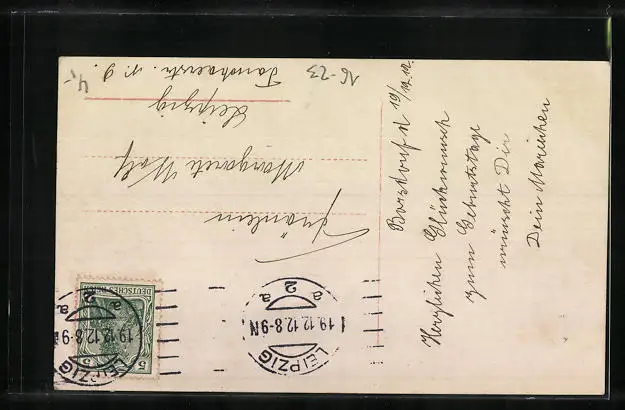 Borsdorf d. 19/12. 12.
Herzlichen Glückwunsch
zum Geburtstage
wünscht Dir
Dein Mariechen
Fräulein
Margarete Wolf
Leipzig
16-23
4,-
DEUTSCHES REICH
5 5
LEIPZIG
19.12.12.8-9N
a 2 a
LEIPZIG
19.12.12.8-9N
a 2 a